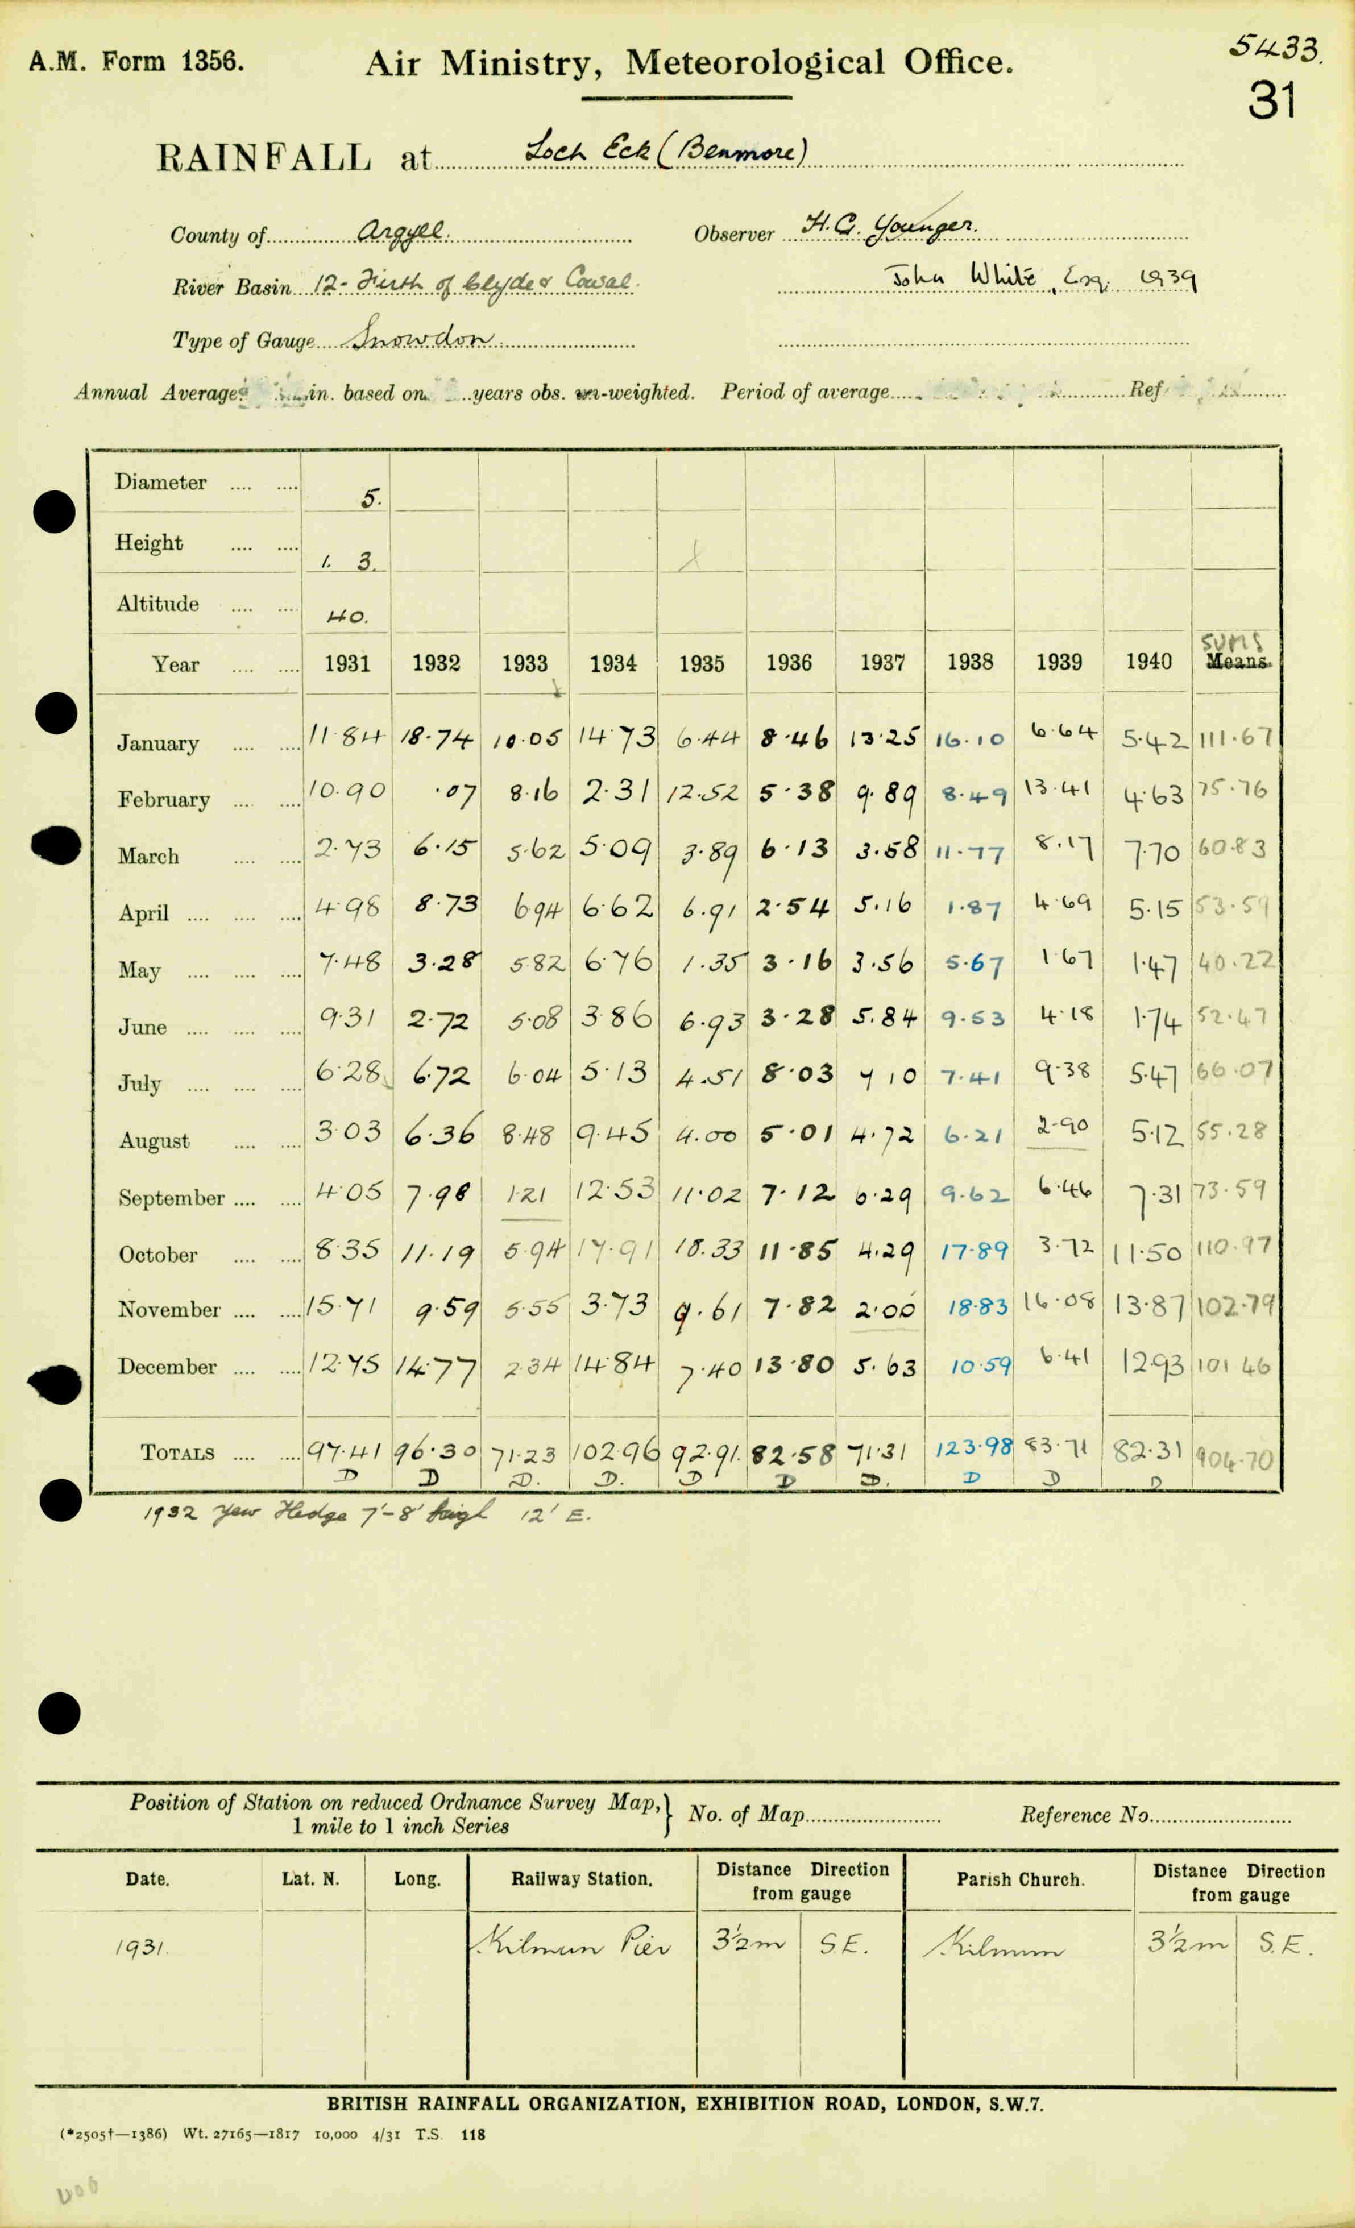 A.M. Form 1356.
Air Ministry, Meteorological Office.
5433.
31
RAINFALL at Loch Eck (Benmore)
County of Argyll.
Observer H.G. Younger.
River Basin 12 - Firth of Clyde & Cowal.
John White, Esq. 1939
Type of Gauge Snowdon
Annual Average in. based on years obs. un-weighted. Period of average Ref
Diameter 5.
Height 1. 3.
Altitude 40.
SUMS
Year 1931 1932 1933 1934 1935 1936 1937 1938 1939 1940 Means.
January 11.84 18.74 10.05 14.73 6.44 8.46 13.25 16.10 6.64 5.42 111.67
February 10.90 .07 8.16 2.31 12.52 5.38 9.89 8.49 13.41 4.63 75.76
March 2.73 6.15 5.62 5.09 3.89 6.13 3.58 11.77 8.17 7.70 60.83
April 4.98 8.73 6.94 6.62 6.91 2.54 5.16 1.87 4.69 5.15 53.59
May 7.48 3.28 5.82 6.76 1.35 3.16 3.56 5.67 1.67 1.47 40.22
June 9.31 2.72 5.08 3.86 6.93 3.28 5.84 9.53 4.18 1.74 52.47
July 6.28 6.72 6.04 5.13 4.51 8.03 7.10 7.41 9.38 5.47 66.07
August 3.03 6.36 8.48 9.45 4.00 5.01 4.72 6.21 2.90 5.12 55.28
September 4.05 7.98 1.21 12.53 11.02 7.12 6.29 9.62 6.46 7.31 73.59
October 8.35 11.19 5.94 17.91 18.33 11.85 4.29 17.89 3.72 11.50 110.97
November 15.71 9.59 5.55 3.73 9.61 7.82 2.00 18.83 16.08 13.87 102.79
December 12.75 14.77 2.34 14.84 7.40 13.80 5.63 10.59 6.41 12.93 101.46
TOTALS 97.41 96.30 71.23 102.96 92.91 82.58 71.31 123.98 83.71 82.31 904.70
D D D. D. D D D. D D D
1932 Yew Hedge 7'-8' high 12' E.
Position of Station on reduced Ordnance Survey Map,
1 mile to 1 inch Series
No. of Map Reference No.
Date. Lat. N. Long. Railway Station. Distance Direction from gauge Parish Church. Distance Direction from gauge
1931. Kilmun Pier 3½m S.E. Kilmun 3½m S.E.
BRITISH RAINFALL ORGANIZATION, EXHIBITION ROAD, LONDON, S.W.7.
(*2505†—1386) Wt. 27165—1817 10,000 4/31 T.S. 118